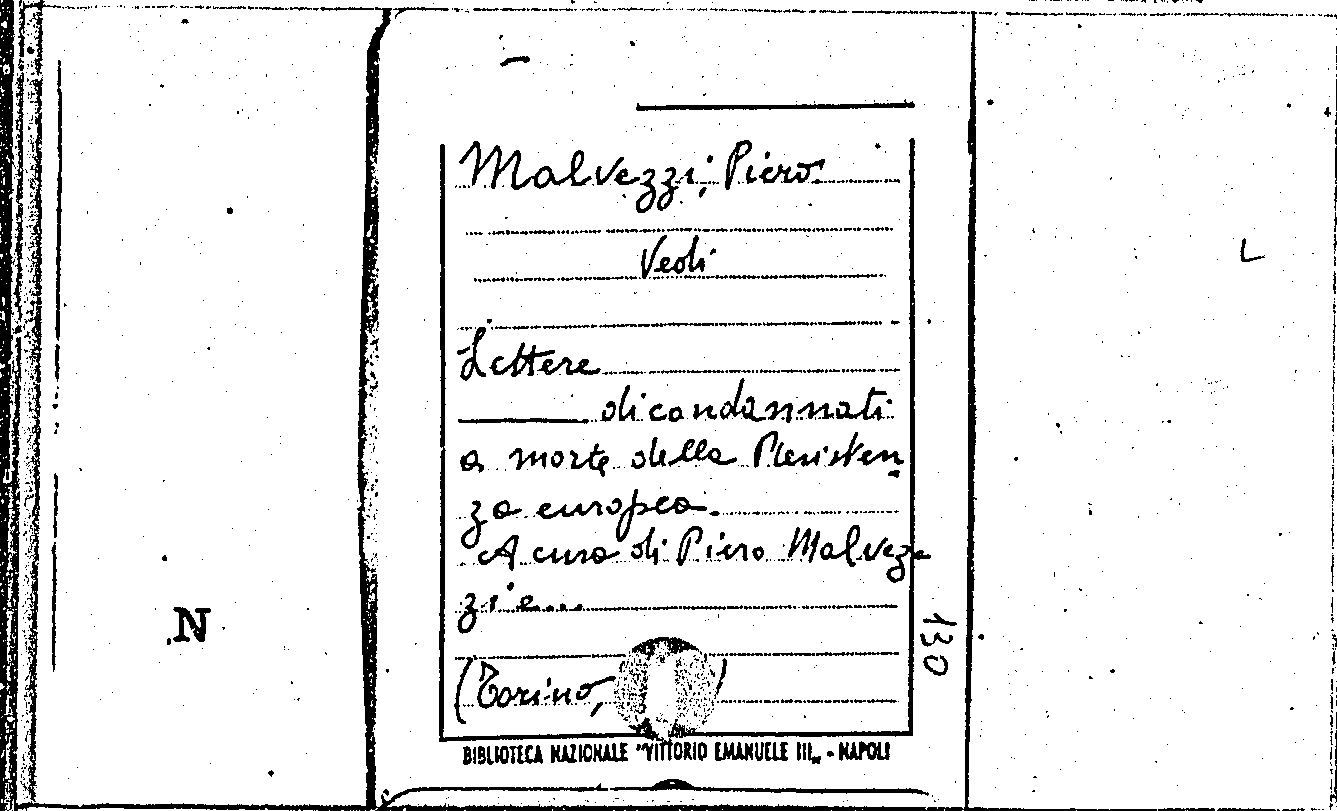 Malvezzi, Piero.
Vedi
Lettere
di condannati
a morte della Resisten
za europea.
A cura di Piero Malvez
zi e...
(Torino, )
BIBLIOTECA NAZIONALE "VITTORIO EMANUELE III„ - NAPOLI
130
N
L